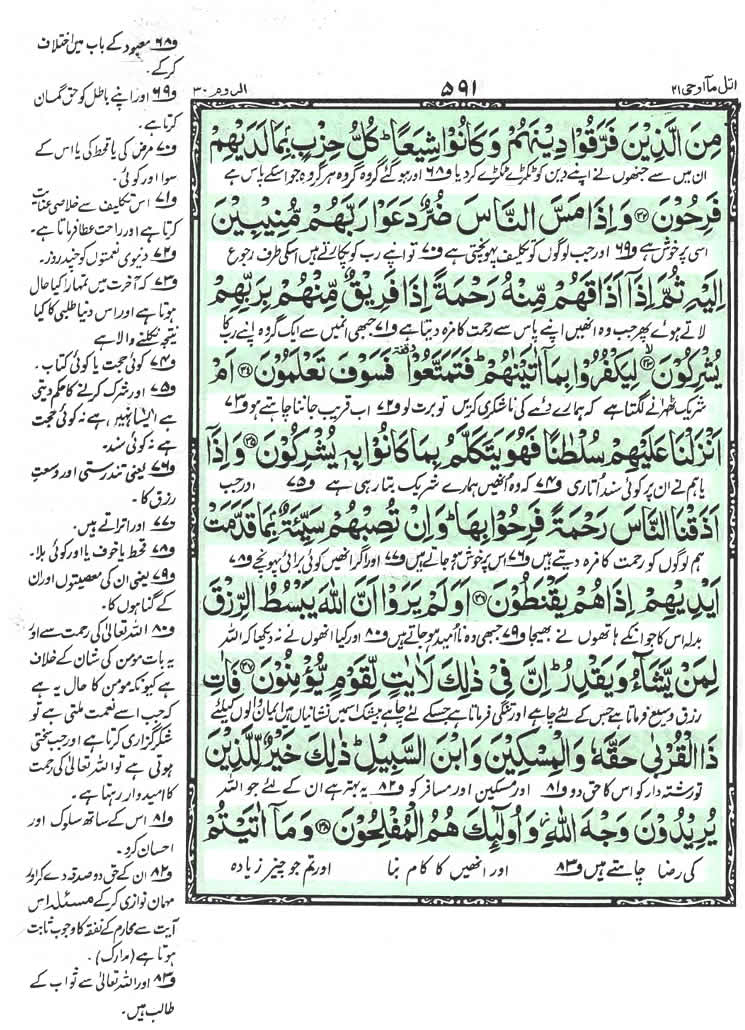 اتل مآ اوحی ۲۱
۵۹۱
الروم ۳۰
مِنَ الَّذِیۡنَ فَرَّقُوۡا دِیۡنَہُمۡ وَ کَانُوۡا شِیَعًا ؕ کُلُّ حِزۡبٍۭ بِمَا لَدَیۡہِمۡ
ان میں سے جنھوں نے اپنے دین کو ٹکڑے ٹکڑے کر دیا و۶۸ اور ہو گئے گروہ گروہ ہر گروہ جو اسکے پاس ہے
فَرِحُوۡنَ ﴿۳۲﴾ وَ اِذَا مَسَّ النَّاسَ ضُرٌّ دَعَوۡا رَبَّہُمۡ مُّنِیۡبِیۡنَ
اسی پر خوش ہے و۶۹ اور جب لوگوں کو تکلیف پہونچتی ہے و۷۰ تو اپنے رب کو پکارتے ہیں اسکی طرف رجوع
اِلَیۡہِ ثُمَّ اِذَاۤ اَذَاقَہُمۡ مِّنۡہُ رَحۡمَۃً اِذَا فَرِیۡقٌ مِّنۡہُمۡ بِرَبِّہِمۡ
لاتے ہوئے پھر جب وہ انھیں اپنے پاس سے رحمت کا مزہ دیتا ہے و۷۱ جبھی انمیں سے ایک گروہ اپنے رب کا
یُشۡرِکُوۡنَ ﴿ۙ۳۳﴾ لِیَکۡفُرُوۡا بِمَاۤ اٰتَیۡنٰہُمۡ ؕ فَتَمَتَّعُوۡا ٝ فَسَوۡفَ تَعۡلَمُوۡنَ ﴿۳۴﴾ اَمۡ
شریک ٹھہرانے لگتا ہے کہ ہمارے دئے کی ناشکری کریں تو برت لو و۷۲ اب قریب جاننا چاہتے ہو و۷۳
اَنۡزَلۡنَا عَلَیۡہِمۡ سُلۡطٰنًا فَہُوَ یَتَکَلَّمُ بِمَا کَانُوۡا بِہٖ یُشۡرِکُوۡنَ ﴿۳۵﴾ وَ اِذَاۤ
یا ہم نے ان پر کوئی سند اتاری و۷۴ کہ وہ انھیں ہمارے شریک بتا رہی ہے و۷۵ اور جب
اَذَقۡنَا النَّاسَ رَحۡمَۃً فَرِحُوۡا بِہَا ؕ وَ اِنۡ تُصِبۡہُمۡ سَیِّئَۃٌۢ بِمَا قَدَّمَتۡ
ہم لوگوں کو رحمت کا مزہ دیتے ہیں و۷۶ اس پر خوش ہو جاتے ہیں و۷۷ اور اگر انھیں کوئی برائی پہونچے و۷۸
اَیۡدِیۡہِمۡ اِذَا ہُمۡ یَقۡنَطُوۡنَ ﴿۳۶﴾ اَوَ لَمۡ یَرَوۡا اَنَّ اللّٰہَ یَبۡسُطُ الرِّزۡقَ
بدلہ اس کا جو انکے ہاتھوں نے بھیجا و۷۹ جبھی وہ ناامید ہو جاتے ہیں و۸۰ اور کیا انھوں نے نہ دیکھا کہ اللہ
لِمَنۡ یَّشَآءُ وَ یَقۡدِرُ ؕ اِنَّ فِیۡ ذٰلِکَ لَاٰیٰتٍ لِّقَوۡمٍ یُّؤۡمِنُوۡنَ ﴿۳۷﴾ فَاٰتِ
رزق وسیع فرماتا ہے جس کے لئے چاہے اور تنگی فرماتا ہے جسکے لئے چاہے بیشک اسمیں نشانیاں ہیں ایمان والوں کیلئے
ذَاالۡقُرۡبٰی حَقَّہٗ وَ الۡمِسۡکِیۡنَ وَ ابۡنَ السَّبِیۡلِ ؕ ذٰلِکَ خَیۡرٌ لِّلَّذِیۡنَ
تو رشتہ دار کو اس کا حق دو و۸۱ اور مسکین اور مسافر کو و۸۲ یہ بہتر ہے ان کے لئے جو اللہ
یُرِیۡدُوۡنَ وَجۡہَ اللّٰہِ ۫ وَ اُولٰٓئِکَ ہُمُ الۡمُفۡلِحُوۡنَ ﴿۳۸﴾ وَ مَاۤ اٰتَیۡتُمۡ
کی رضا چاہتے ہیں و۸۳ اور انھیں کا کام بنا اور تم جو چیز زیادہ
و۶۸ معبود کے باب میں اختلاف
کر کے۔
و۶۹ اور اپنے باطل کو حق گمان
کرتا ہے۔
و۷۰ مرض کی یا قحط کی یا اس کے
سوا اور کوئی۔
و۷۱ اس تکلیف سے خلاصی عنایت
کرتا ہے اور راحت عطا فرماتا ہے۔
و۷۲ دنیوی نعمتوں کو چند روز۔
و۷۳ کہ آخرت میں تمہارا کیا حال
ہوتا ہے اور اس دنیا طلبی کا کیا
نتیجہ نکلنے والا ہے
و۷۴ کوئی حجت یا کوئی کتاب۔
و۷۵ اور شرک کرنے کا حکم دیتی
ہے ایسا نہیں ہے نہ کوئی حجت
ہے نہ کوئی سند۔
و۷۶ یعنی تندرستی اور وسعتِ
رزق کا۔
و۷۷ اور اتراتے ہیں۔
و۷۸ قحط یا خوف یا اور کوئی بلا۔
و۷۹ یعنی ان کی معصیتوں اور ان
کے گناہوں کا۔
و۸۰ اللہ تعالیٰ کی رحمت سے اور
یہ بات مومن کی شان کے خلاف
ہے کیونکہ مومن کا حال یہ ہے
کہ جب اسے نعمت ملتی ہے تو
شکر گزاری کرتا ہے اور جب سختی
ہوتی ہے تو اللہ تعالیٰ کی رحمت
کا امیدوار رہتا ہے۔
و۸۱ اس کے ساتھ سلوک اور
احسان کرو۔
و۸۲ ان کے حق دو صدقہ دے کر اور
مہمان نوازی کر کے مسئلہ اس
آیت سے محارم کے نفقہ کا وجوب ثابت
ہوتا ہے (مدارک)۔
و۸۳ اور اللہ تعالیٰ سے ثواب کے
طالب ہیں۔